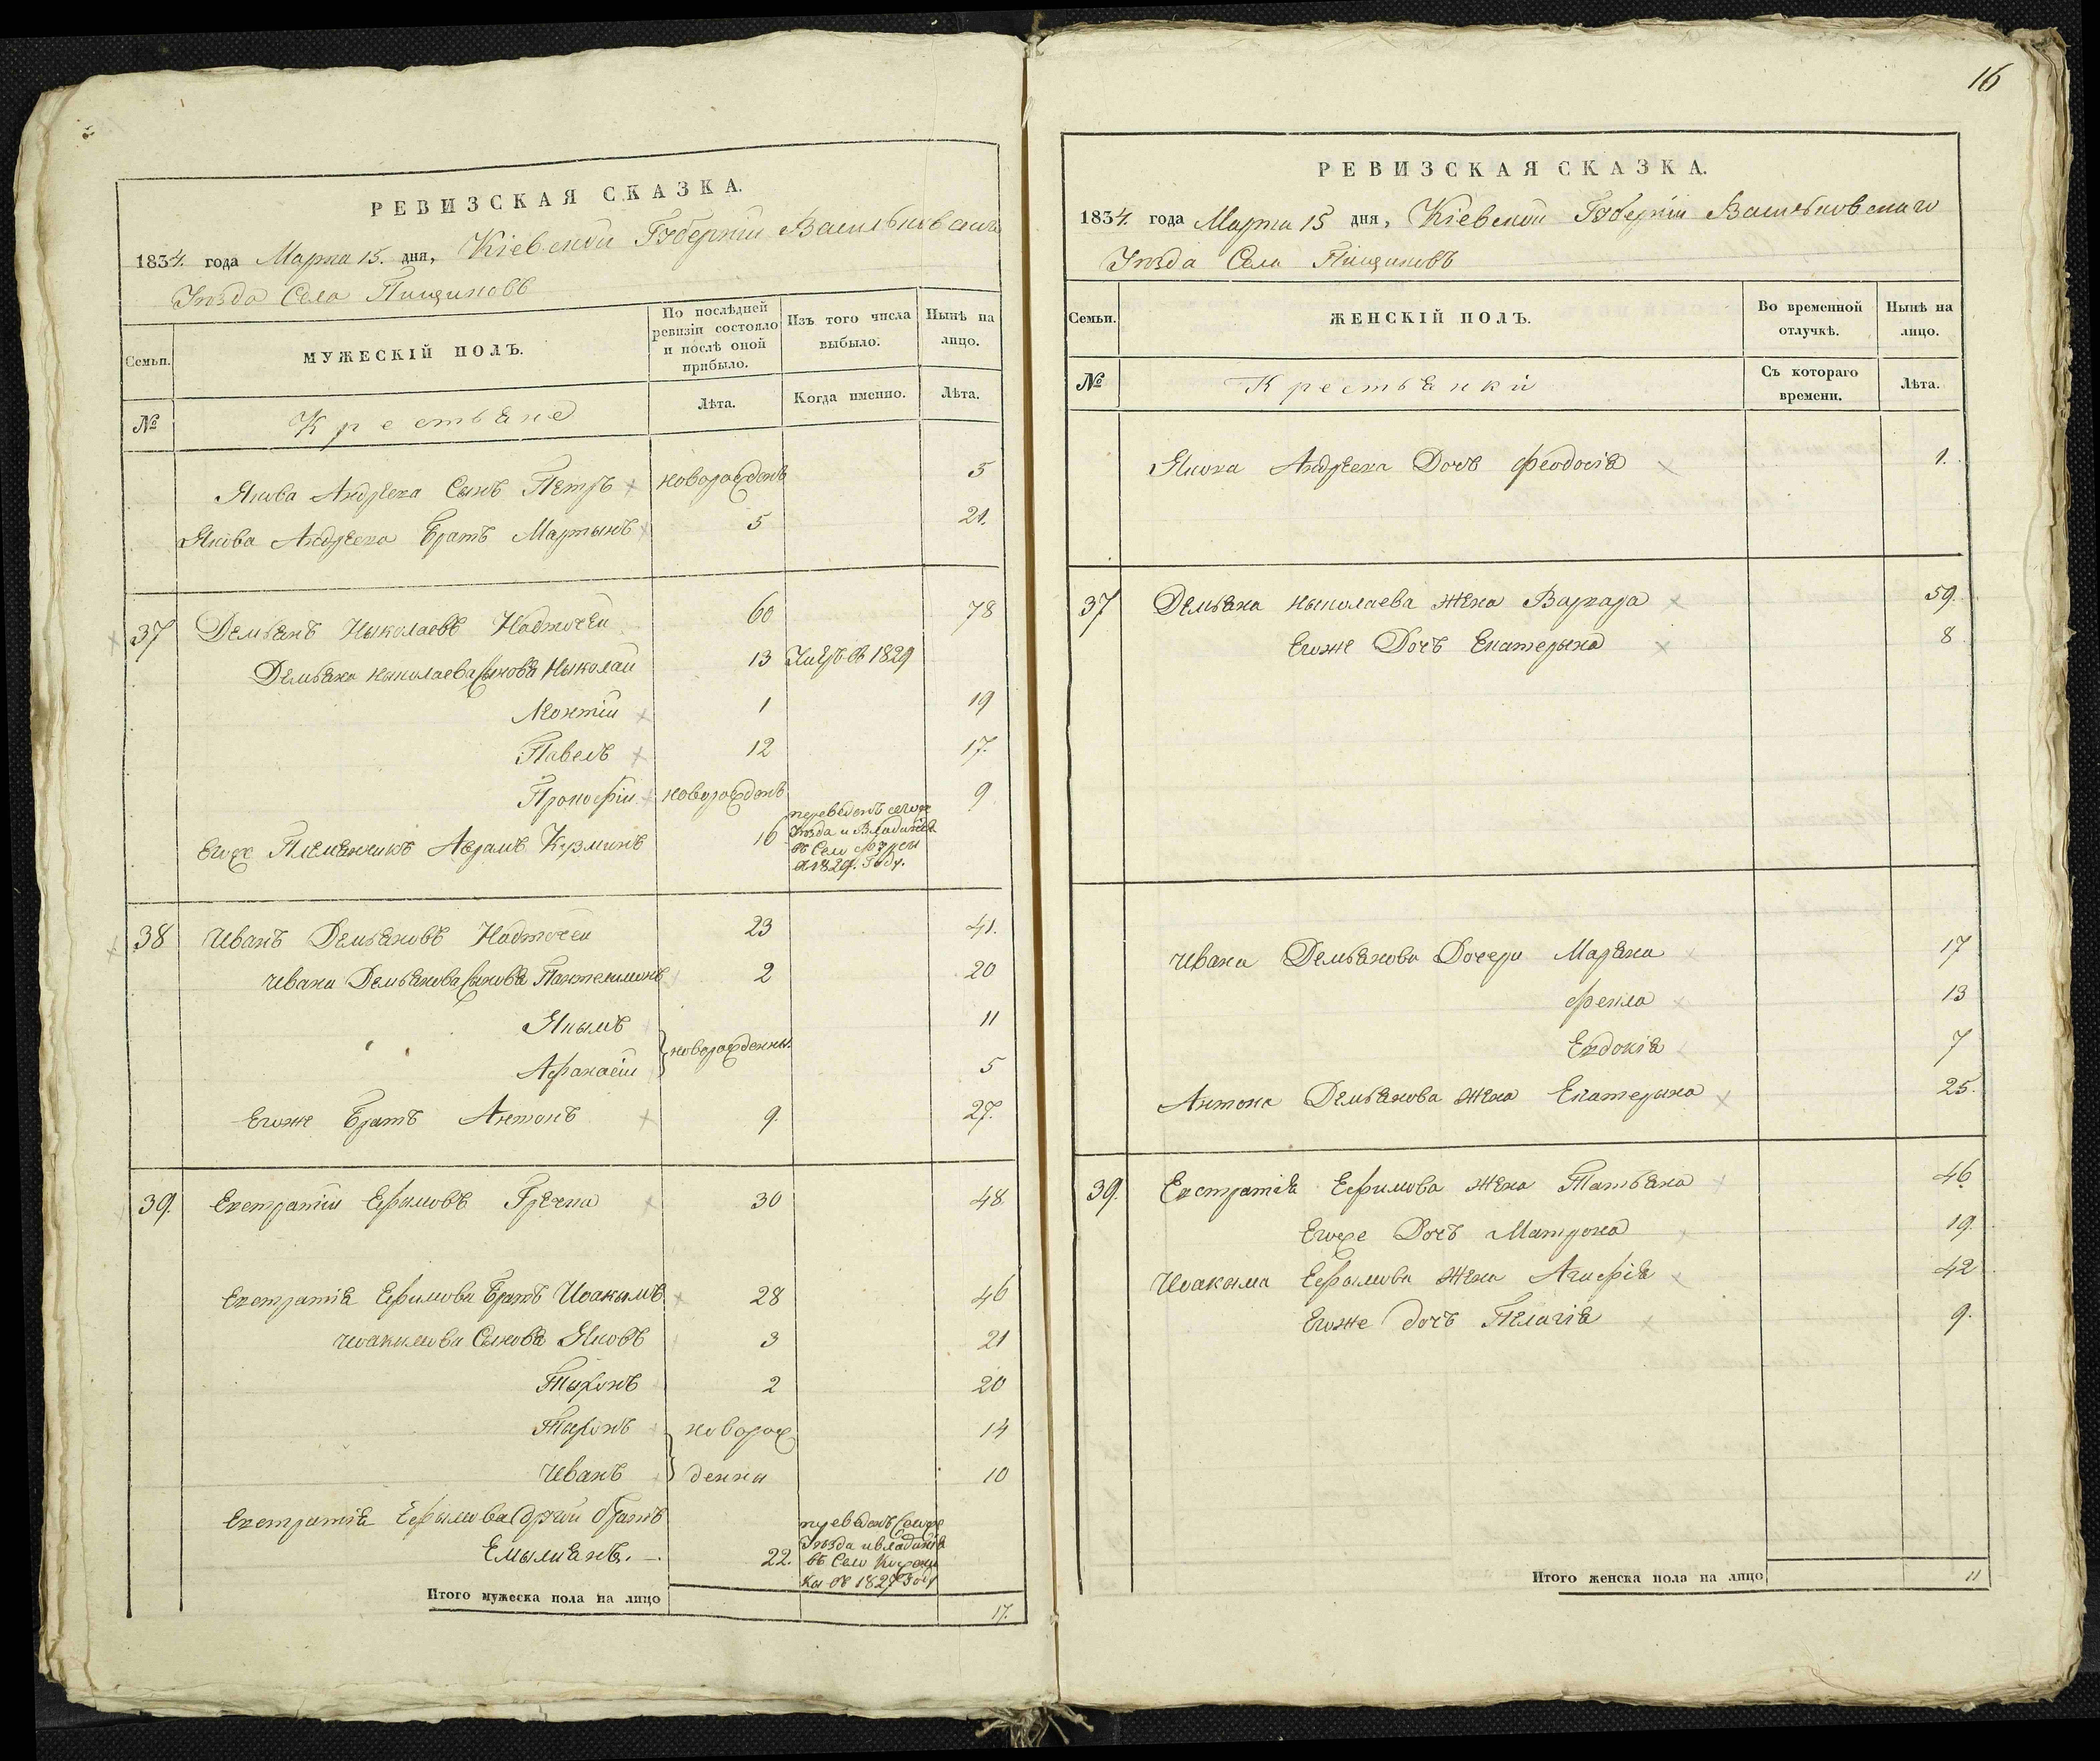 16
РЕВИЗСКАЯ СКАЗКА.
1834. года Марта 15. дня, Кіевской Губерніи Васильковскаго
Уѣзда Села Пищиковъ
Семьи.
МУЖЕСКІЙ ПОЛЪ.
По послѣдней ревизіи состояло и послѣ оной прибыло.
Изъ того числа выбыло.
Нынѣ на лицо.
№
Крестьяне
Лѣта.
Когда именно.
Лѣта.
Якова Андреева Сынъ Петръ новорожденъ 5
Якова Андреева Братъ Мартынъ 5 21.
37 Демьянъ Николаевъ Надточей 60 78
Демьяна Николаева Сыновя Николай 13 Умеръ въ 1829
Леонтій 1 19
Павелъ 12 17.
Прокофій новорожденъ 9
Егож Племянникъ Аврамъ Кузминъ 16 переведенъ сегож
Уѣзда и Владинія
въ Село
в 1829. Году.
38 Иванъ Демьяновъ Надточей 23 41.
Ивана Демьянова Сыновя Пантелимонъ 2 20
Якымъ 11
новорожденны.
Афанасій 5
Егоже Братъ Антонъ 9. 27.
39. Евстратій Ефымовъ Гречка 30 48
Евстратія Ефимова Братъ Иоакымъ 28 46
Иоакымова Сыновя Яковъ 3 21
Тыхонъ 2 20
Тыхонъ новорож 14
Иванъ денны 10
Евстратія Ефымова Другій братъ
Емылиянъ. 22. переведенъ Сегож
Уѣзда и владинія
въ Село
ки въ 1827 Году
Итого мужеска пола на лицо 17.
РЕВИЗСКАЯ СКАЗКА.
1834. года Марта 15 дня, Кіевской Губерніи Васильковскаго
Уѣзда Села Пищиковъ
Семьи.
ЖЕНСКІЙ ПОЛЪ.
Во временной отлучкѣ.
Нынѣ на лицо.
№
Крестьянки
Съ котораго времени.
Лѣта.
Якова Андреева Дочь Феодосія 1.
37 Демьяна Николаева Жена Варвара 59.
Егоже Дочь Екатерына 8
Ивана Демьянова Дочери Маряна 17
Фекла 13
Евдокія 7
Антона Демьянова Жена Екатерына 25.
39. Евстратія Ефимова Жена Татьяна 46
Егоже Дочь Матрона 19.
Иоакыма Ефымова Жена Агафія 42
Егоже дочь Пелагія 9.
Итого женска пола на лицо 11